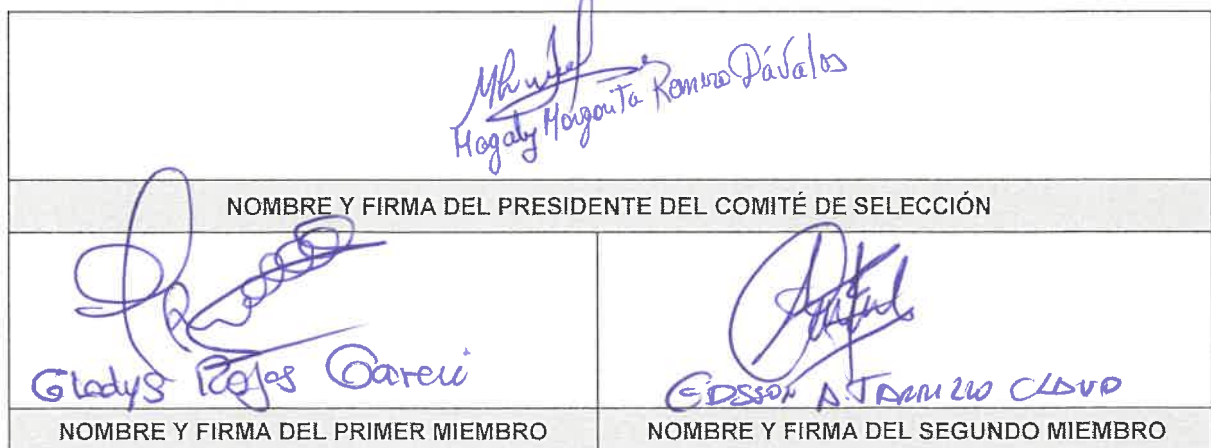 Magaly Margarita Romero Dávalos
NOMBRE Y FIRMA DEL PRESIDENTE DEL COMITÉ DE SELECCIÓN
Gladys Rojas
EDSSON A
NOMBRE Y FIRMA DEL PRIMER MIEMBRO
NOMBRE Y FIRMA DEL SEGUNDO MIEMBRO